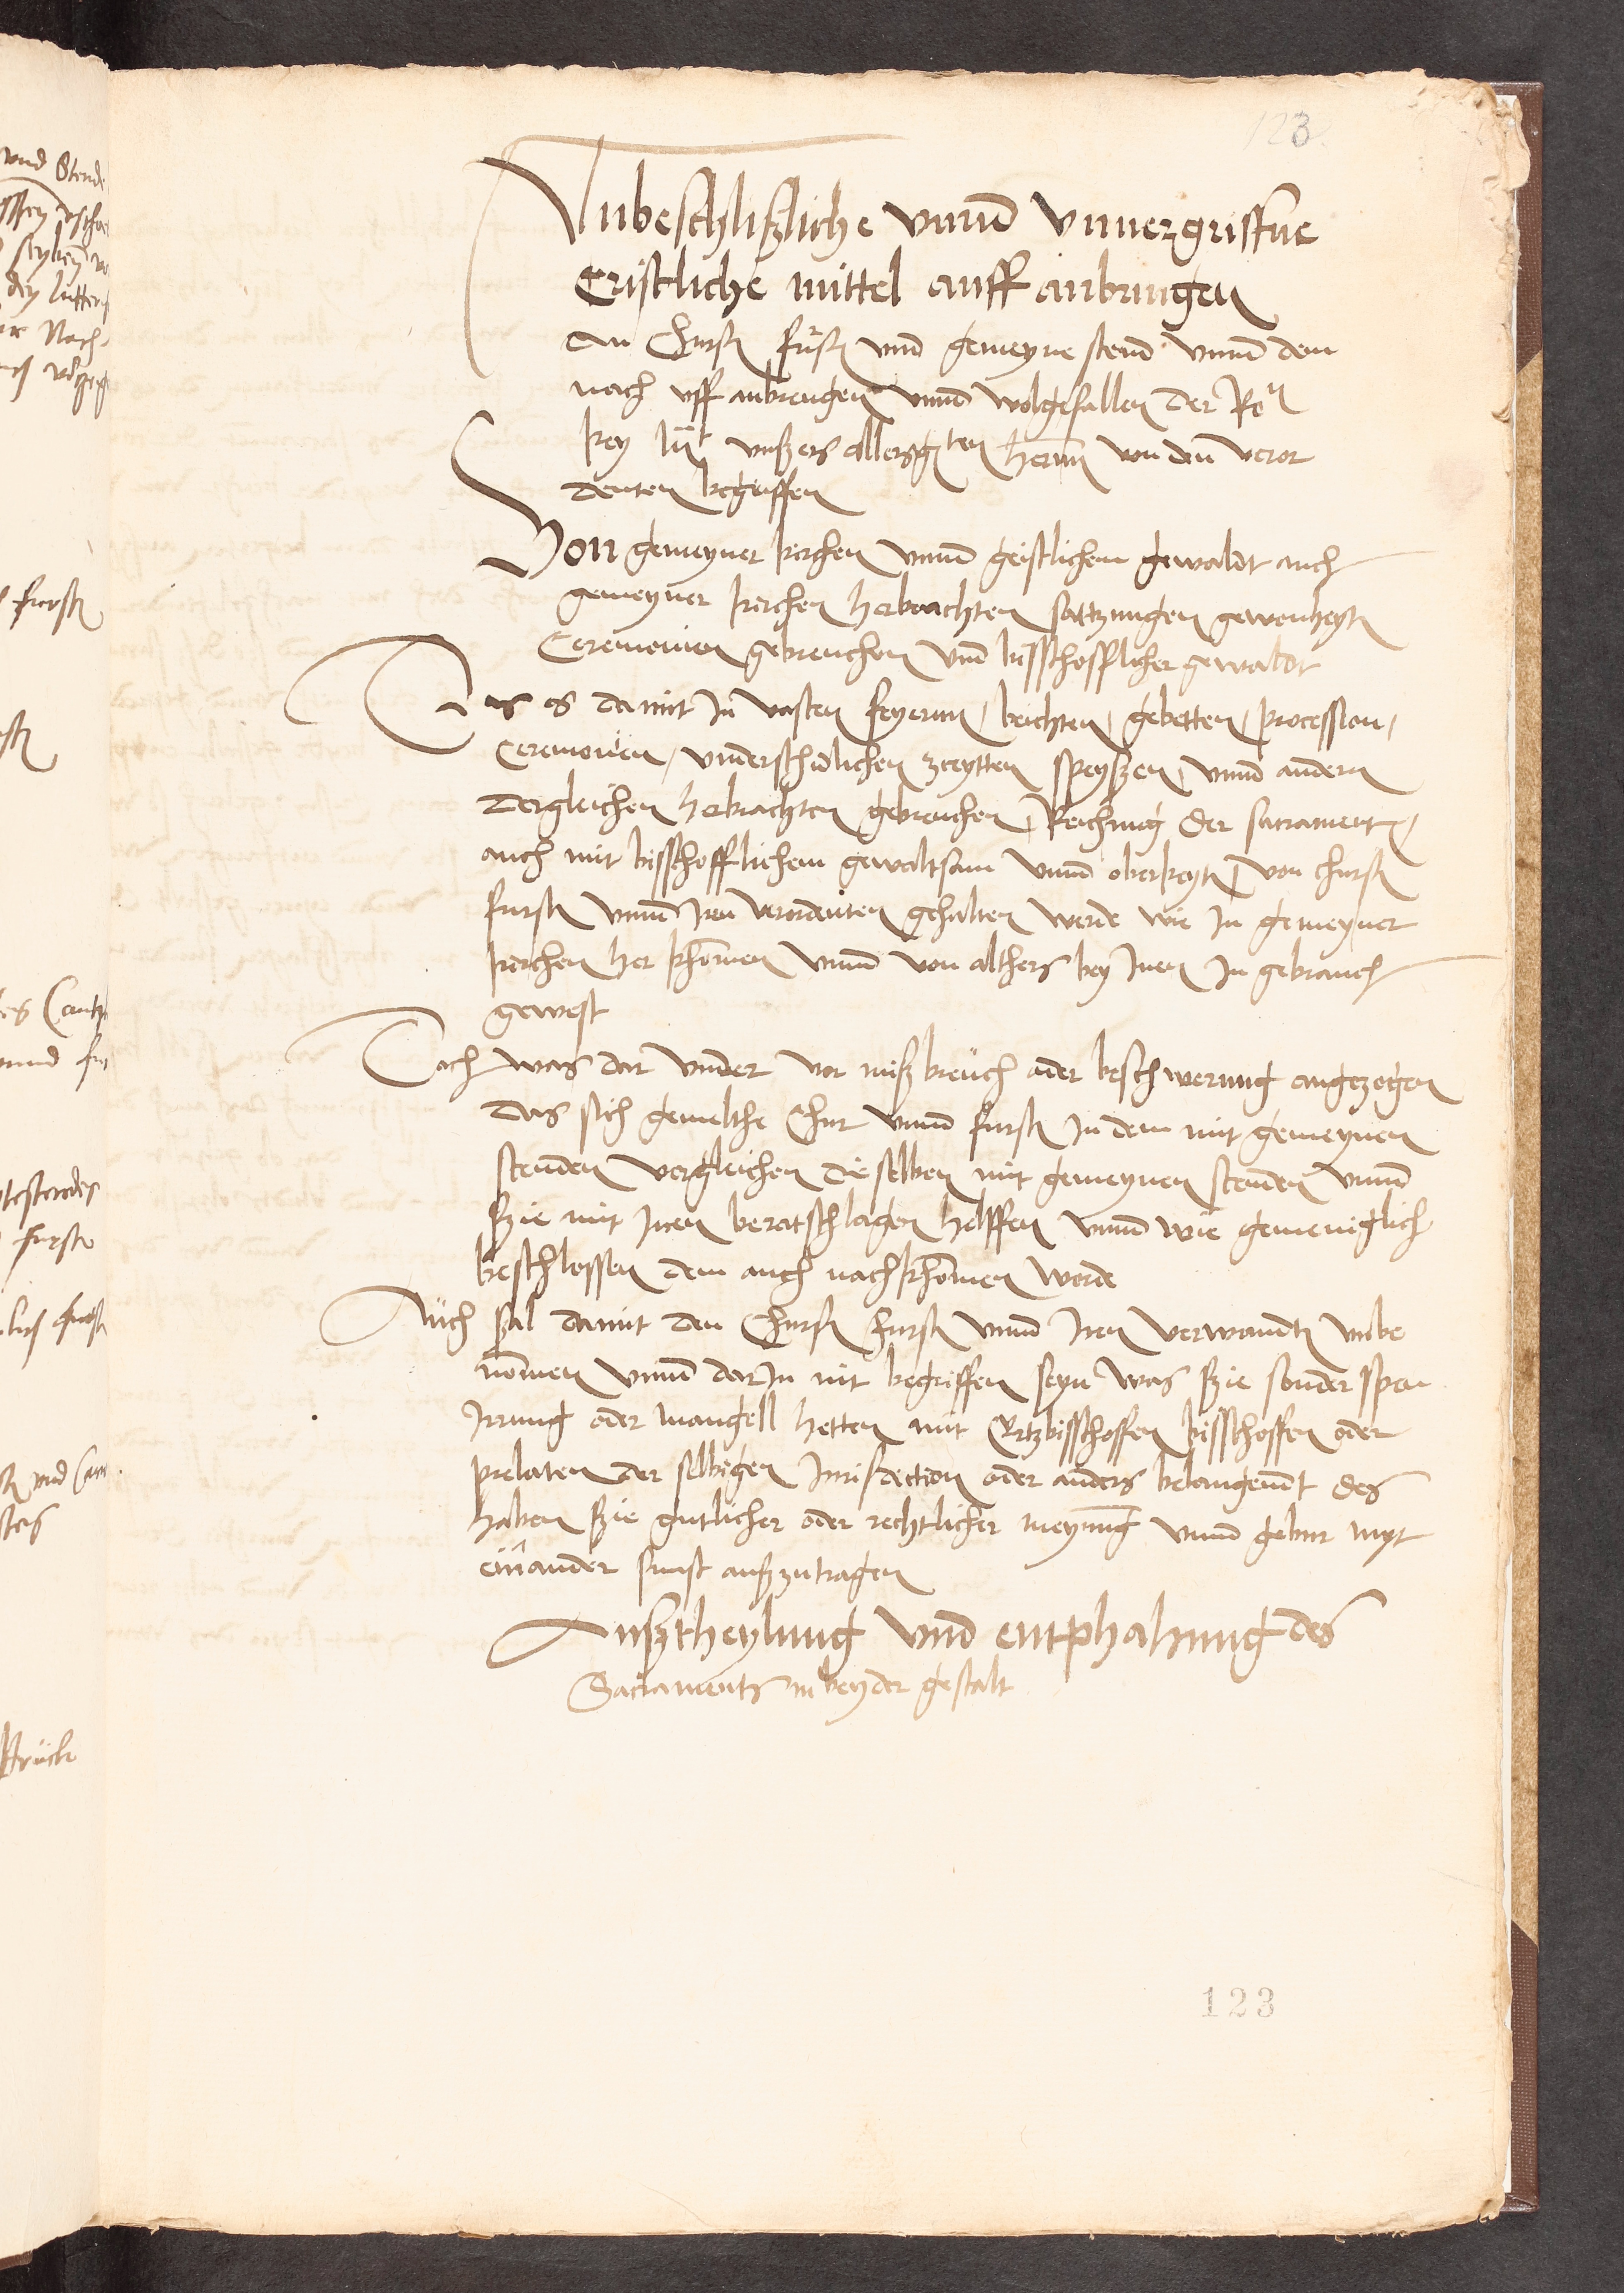 123
Unbeschlißliche vnnd vnuergriffne
Cristliche mittel auff anbringen
an Churf fursten vnd gemeyne stend vnnd dem
nach vff anbrengen vnnd wolgefallen der Ro
key Mt vnßers allergten Hernn von den veror
denten begriffen
Von gemeyner kirchen vnnd geistlichem gewaldt auch
gemeyner kirchen herbrachten sattzungen gewonheyten
Ceremonien gebreuchen vnd bisschofflicher gewaldt
Das es damit In vasten feyernn, beichten, gebetten, procession,
Ceremonien, vnderschidlichen zceytten speyßen, vnnd andern
dergleichen herbrachten gebreuchen, Reichung der sacrament,
auch mit bisschofflichem gewaltsam vnnd oberkeyten, von churf
fursten vnnd Iren verordenten gehalten werde wie In gemeyner
kirchen her khomen vnnd von althers bey Inen In gebrauch
gewest
Doch was dar vnder vor mißbreuch ader beschwerung angezogen
das sich gemelthe Chur vnnd fursten In dem mit gemeynen
stenden vergleichen die selben mit gemeynen stenden vnnd
ßie mit Inen beratschlagen helffen vnnd wie gemeniglich
beschlossen dem auch nachkhomen werde
Auch ßal damit den Churf fursten vnnd Iren verwandten vnbe
nommen vnnd dar In nit begriffen seyn was ßie sonder span
Irrung oder mangell hetten mit Ertzbisschoffen bisschoffen oder
prelaten der selbigen Jurisdiction oder anders belangendt des
haben ßie gutlicher oder rechtlicher meynung vnnd gebur myt
einander sunst außzutragen
Außtheylung vnd entphahung des
Sacraments in beyder gestalt
123